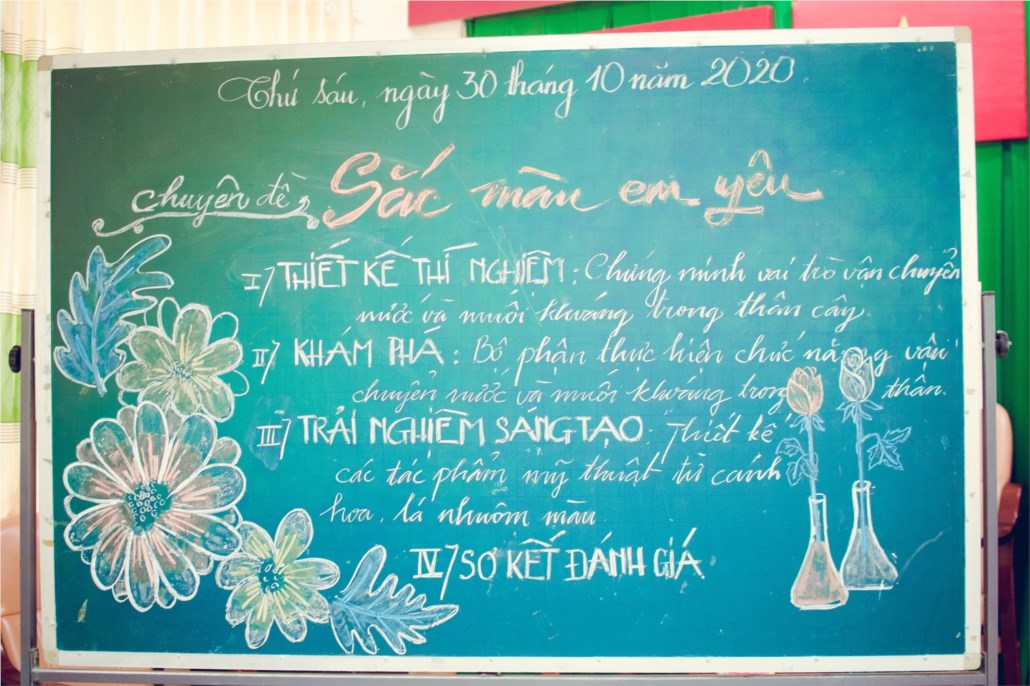 Thứ sáu, ngày 30 tháng 10 năm 2020.
Chuyên đề Sắc màu em yêu
I) THIẾT KẾ THÍ NGHIỆM: Chứng minh vai trò vận chuyển
nước và muối khoáng trong thân cây.
II) KHÁM PHÁ: Bộ phận thực hiện chức năng vận
chuyển nước và muối khoáng trong thân.
III) TRẢI NGHIỆM SÁNG TẠO: Thiết kế
các tác phẩm mỹ thuật từ cánh
hoa, lá nhuôm màu
IV) SƠ KẾT ĐÁNH GIÁ